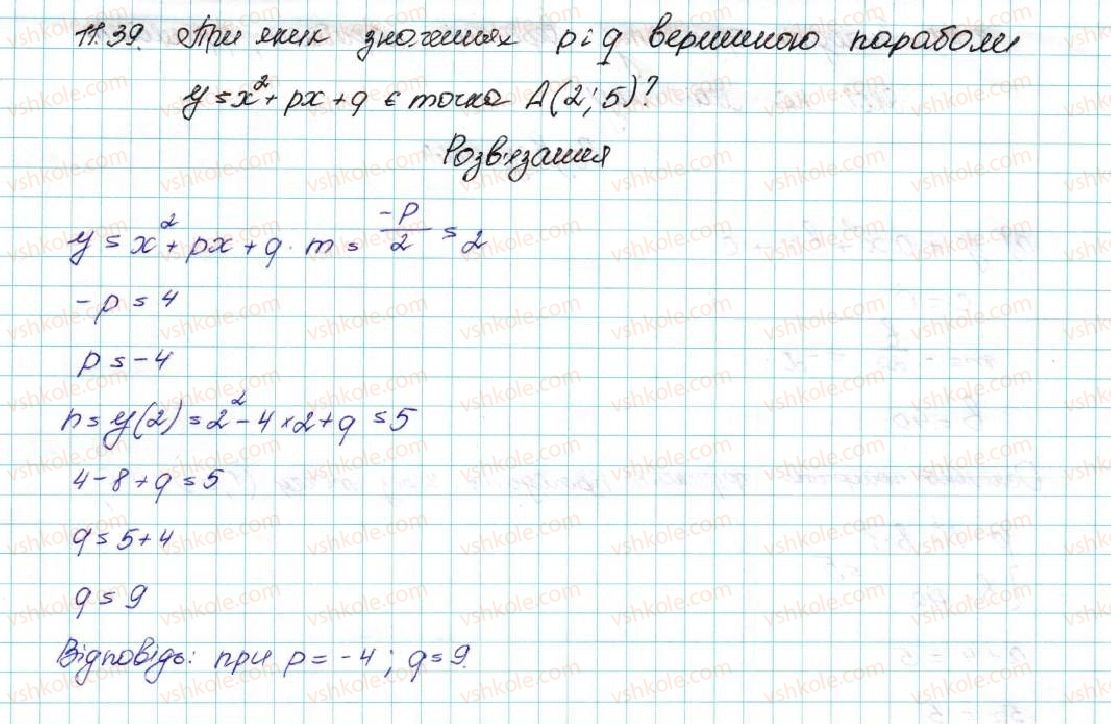 11.39. При яких значеннях p і q вершиною параболи
y = x² + px + q є точка A(2; 5)?
Розв'язання
y = x² + px + q. m = -p/2 = 2
-p = 4
p = -4
n = y(2) = 2² - 4 × 2 + q = 5
4 - 8 + q = 5
q = 5 + 4
q = 9
Відповідь: при p = -4; q = 9.